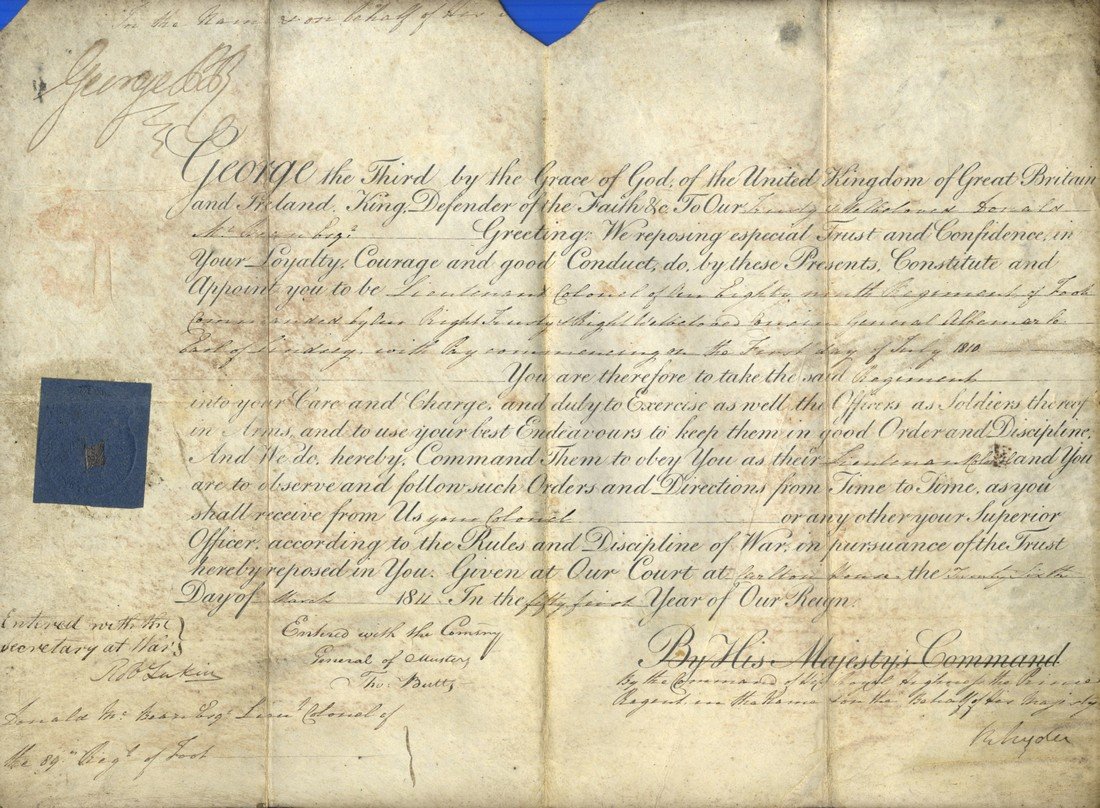 In the Name & on behalf of His
George P R
George the Third by the Grace of God, of the United Kingdom of Great Britain
and Ireland, King, Defender of the Faith &c. To Our Trusty & Welbeloved Donald
Esqr. Greeting: We reposing especial Trust and Confidence in
Your Loyalty, Courage and good Conduct, do, by these Presents, Constitute and
Appoint you to be Lieutenant Colonel of Our Eighty ninth Regiment of Foot
Commanded by Our Right Trusty & Right Welbeloved Cousin General Albemarle
Earl of Lindsey, with Pay commencing on the First day of July 1810
You are therefore to take the said Regiment
into your Care and Charge, and duly to Exercise as well the Officers as Soldiers thereof
in Arms, and to use your best Endeavours to keep them in good Order and Discipline,
And We do, hereby, Command Them to obey You as their Lieutenant Colonel and You
are to observe and follow such Orders and Directions from Time to Time, as you
shall receive from Us your Colonel or any other your Superior
Officer, according to the Rules and Discipline of War, in pursuance of the Trust
hereby reposed in You. Given at Our Court at Carlton House the Twenty Sixth
Day of March 1811 In the fifty first Year of Our Reign.
Entered with the
Secretary at War
Robt Lukin
Entered with the Commry
General of Musters
Thos Butts
By His Majesty's Command
By the Command of His Royal Highness the Prince
Regent in the Name & on the Behalf of His Majesty
R Ryder
Donald Esqr. Lieut Colonel of
the 89th Regt of Foot